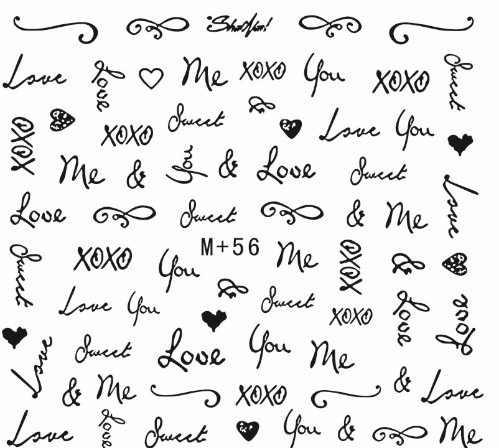 Love Love Me XOXO You XOXO Sweet
XOXO XOXO Sweet & Love You
Me & You & Love Sweet Love
Love Sweet & Me
Sweet XOXO You M+56 Me XOXO &
Love You & Sweet XOXO Love Love
Love Sweet Love You Me
& Me XOXO & Love
Love Love Sweet You & Me